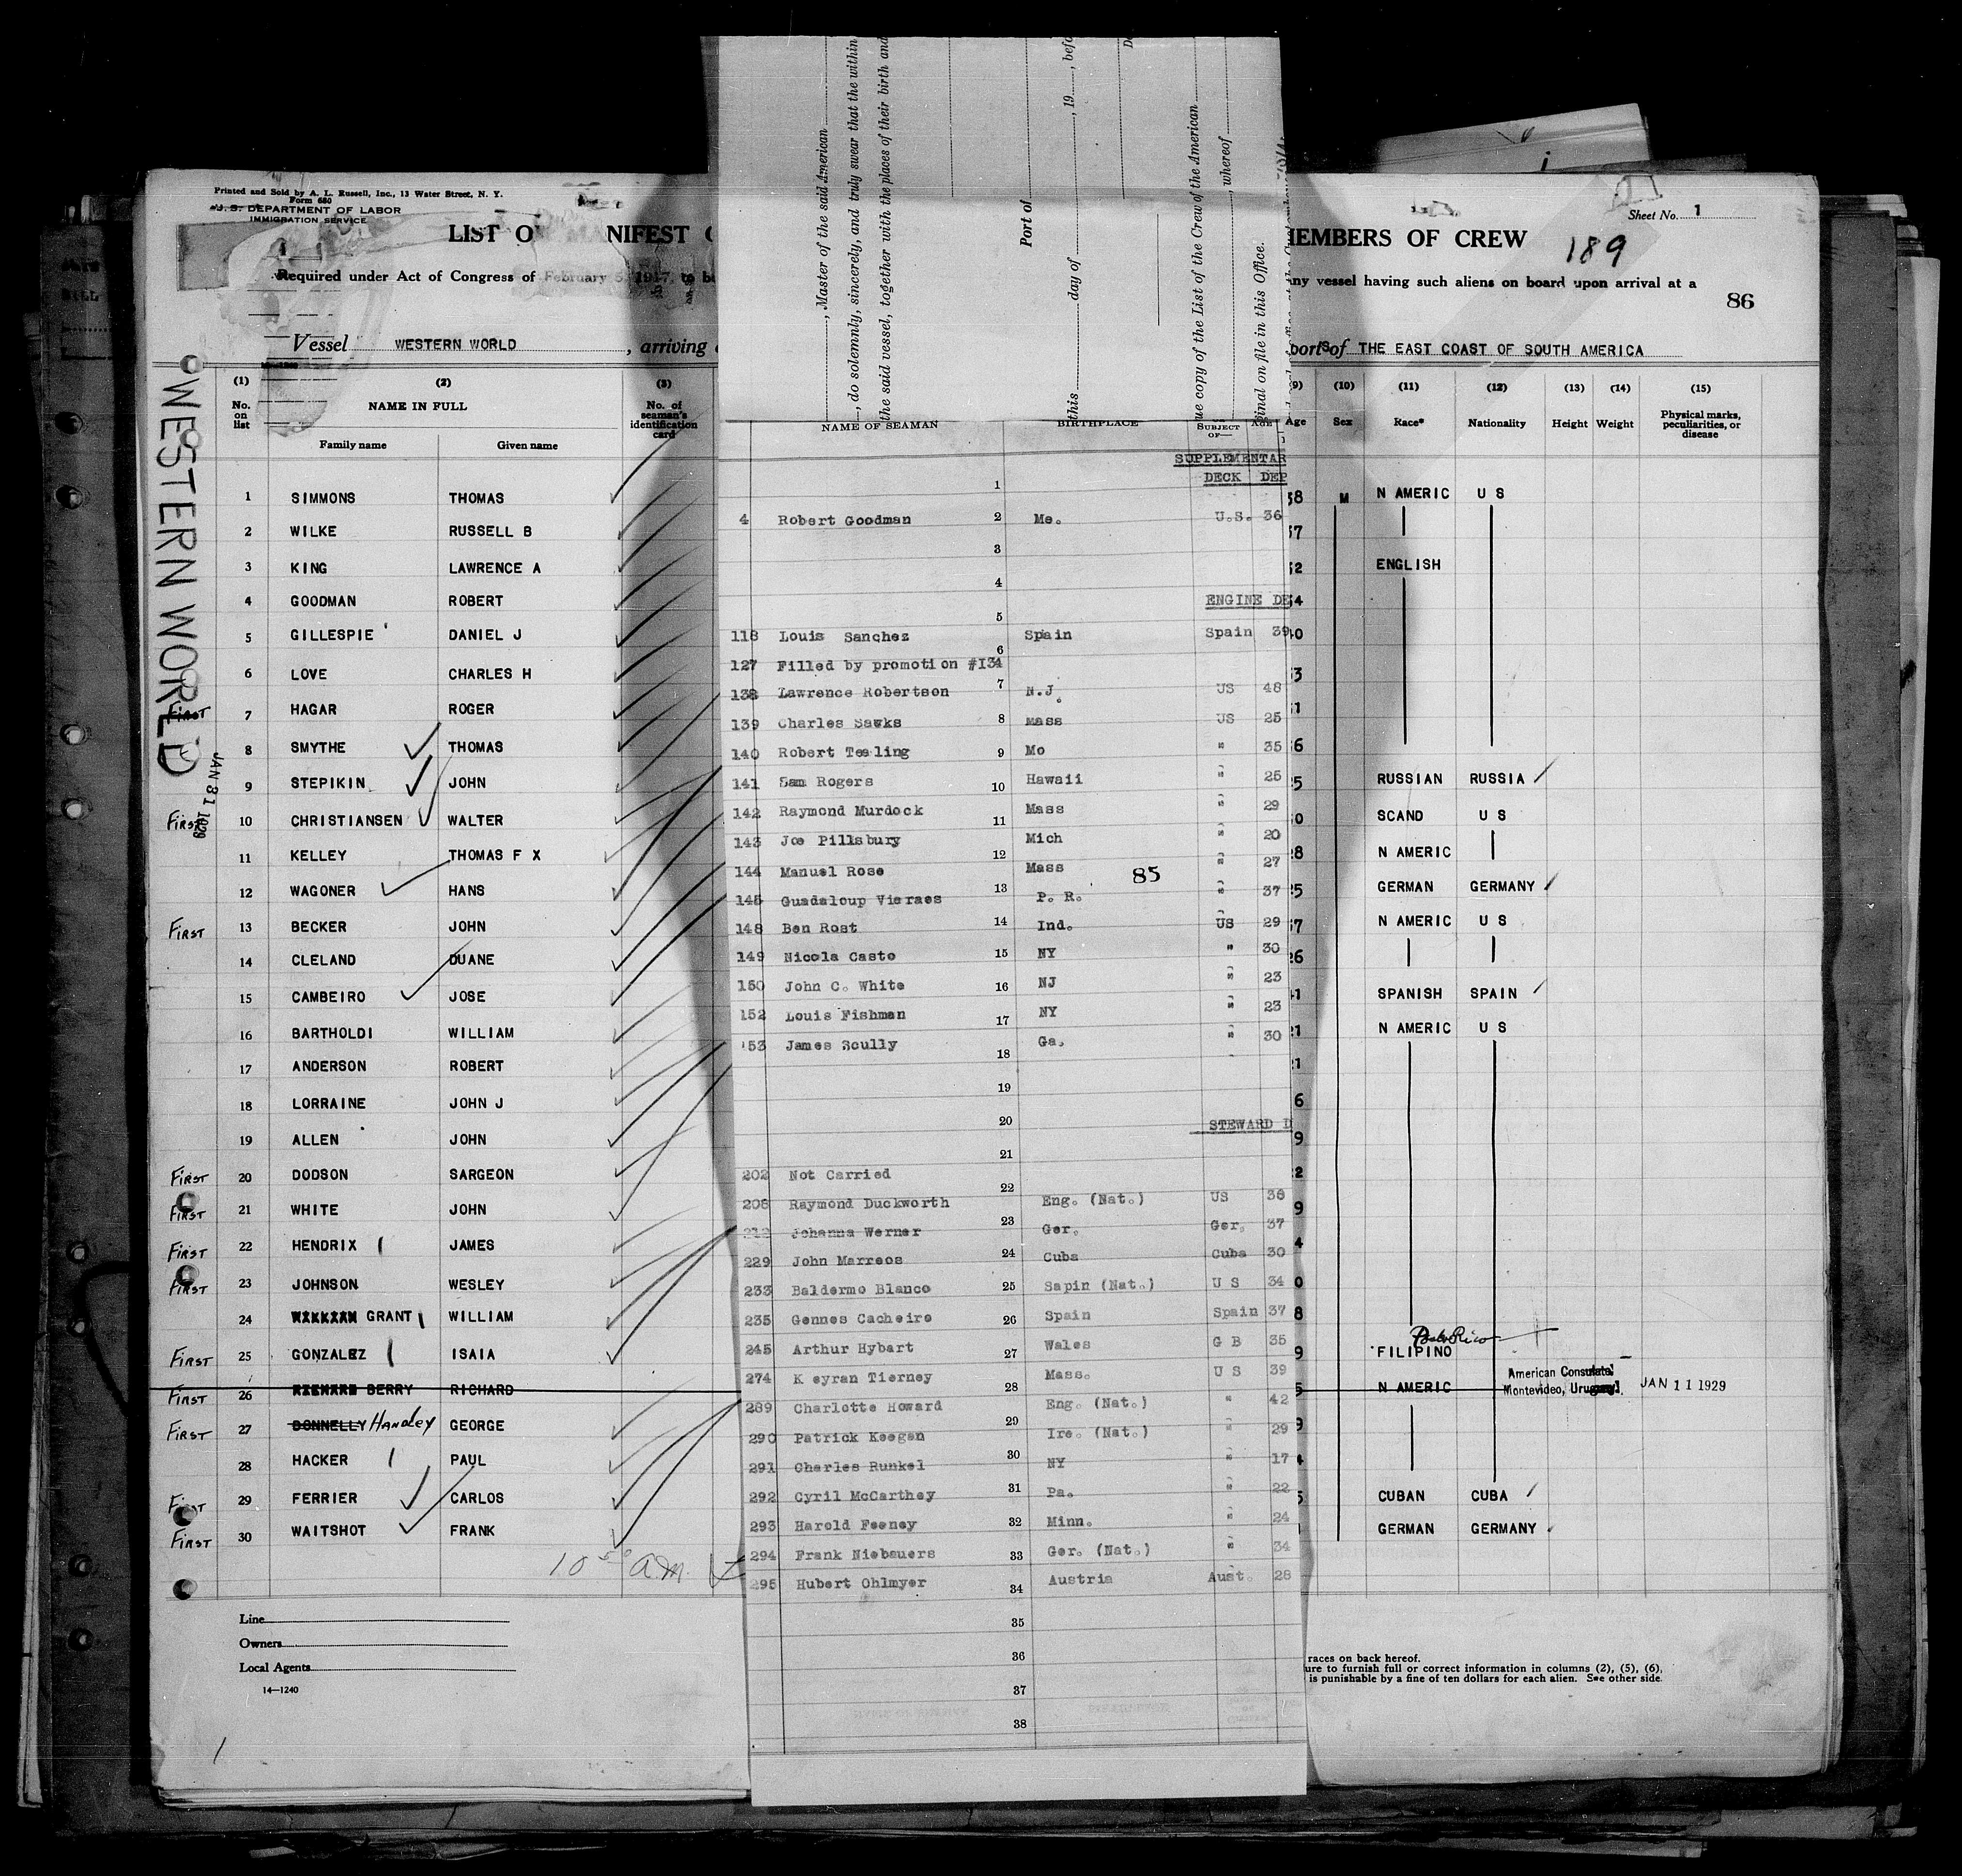 Printed and Sold by A. L. Russell, Inc., 13 Water Street, N. Y.
Form 680
U. S. DEPARTMENT OF LABOR
IMMIGRATION SERVICE
LIST O
NIFEST
Required under Act of Congress of February 5, 1917, to be
Vessel WESTERN WORLD, arriving
WESTERN WORLD
JAN 31 1929
(1) (2) (3)
No. on list
NAME IN FULL
No. of seaman's identification card
Family name Given name
1 SIMMONS THOMAS
2 WILKE RUSSELL B
3 KING LAWRENCE A
4 GOODMAN ROBERT
5 GILLESPIE DANIEL J
6 LOVE CHARLES H
First 7 HAGAR ROGER
8 SMYTHE THOMAS
9 STEPIKIN JOHN
First 10 CHRISTIANSEN WALTER
11 KELLEY THOMAS F X
12 WAGONER HANS
First 13 BECKER JOHN
14 CLELAND DUANE
15 CAMBEIRO JOSE
16 BARTHOLDI WILLIAM
17 ANDERSON ROBERT
18 LORRAINE JOHN J
19 ALLEN JOHN
First 20 DODSON SARGEON
First 21 WHITE JOHN
First 22 HENDRIX JAMES
First 23 JOHNSON WESLEY
24 GRANT WILLIAM
First 25 GONZALEZ ISAIA
First 26 BERRY RICHARD
First 27 DONNELLY Handley GEORGE
28 HACKER PAUL
First 29 FERRIER CARLOS
First 30 WAITSHOT FRANK
10 50 a.m.
Line
Owners
Local Agents
14—1240
, Master of the said American
, do solemnly, sincerely, and truly swear that the within
the said vessel, together with the places of their birth and
Port of
this day of , 19 , befo
ue copy of the List of the Crew of the American
, whereof
inal on file in this Office.
NAME OF SEAMAN BIRTHPLACE SUBJECT OF— AGE
SUPPLEMENTAR
DECK DEP
1
4 Robert Goodman 2 Me. U.S. 36
3
4
ENGINE DE
5
118 Louis Sanchez Spain Spain 39
6
127 Filled by promotion #134
138 Lawrence Robertson 7 N.J. US 48
139 Charles Sawks 8 Mass US 25
140 Robert Tealing 9 Mo " 35
141 Sam Rogers 10 Hawaii " 25
142 Raymond Murdock 11 Mass " 29
143 Joe Pillsbury 12 Mich " 20
144 Manuel Rose Mass " 27
85
145 Guadaloup Vieraes 13 P. R. " 37
148 Ben Rost 14 Ind. US 29
149 Nicola Casto 15 NY " 30
150 John C. White 16 NJ " 23
152 Louis Fishman 17 NY " 23
153 James Scully 18 Ga. " 30
19
20
STEWARD D
21
202 Not Carried
22
208 Raymond Duckworth Eng. (Nat.) US 36
212 Johanna Werner 23 Ger. Ger. 37
229 John Marreos 24 Cuba Cuba 30
233 Baldermo Blanco 25 Sapin (Nat.) U S 34
235 Gennes Cacheiro 26 Spain Spain 37
245 Arthur Hybart 27 Wales G B 35
274 K eyran Tierney 28 Mass. U S 39
289 Charlotte Howard Eng. (Nat.) " 42
29
290 Patrick Keegan Ire. (Nat.) " 29
291 Charles Runkel 30 NY " 17
292 Cyril McCarthey 31 Pa. " 22
293 Harold Feeney 32 Minn. " 24
294 Frank Niebauers 33 Ger. (Nat.) " 34
295 Hubert Ohlmyer 34 Austria Aust. 28
35
36
37
38
Sheet No. 1
EMBERS OF CREW
189
ny vessel having such aliens on board upon arrival at a
86
ports of THE EAST COAST OF SOUTH AMERICA
(9) (10) (11) (12) (13) (14) (15)
Age Sex Race* Nationality Height Weight Physical marks, peculiarities, or disease
38 M N AMERIC U S
ENGLISH
RUSSIAN RUSSIA
SCAND U S
N AMERIC
GERMAN GERMANY
N AMERIC U S
SPANISH SPAIN
N AMERIC U S
Porto Rico
FILIPINO
N AMERIC
American Consulate
Montevideo, Uruguay JAN 11 1929
CUBAN CUBA
GERMAN GERMANY
races on back hereof.
ure to furnish full or correct information in columns (2), (5), (6),
is punishable by a fine of ten dollars for each alien. See other side.